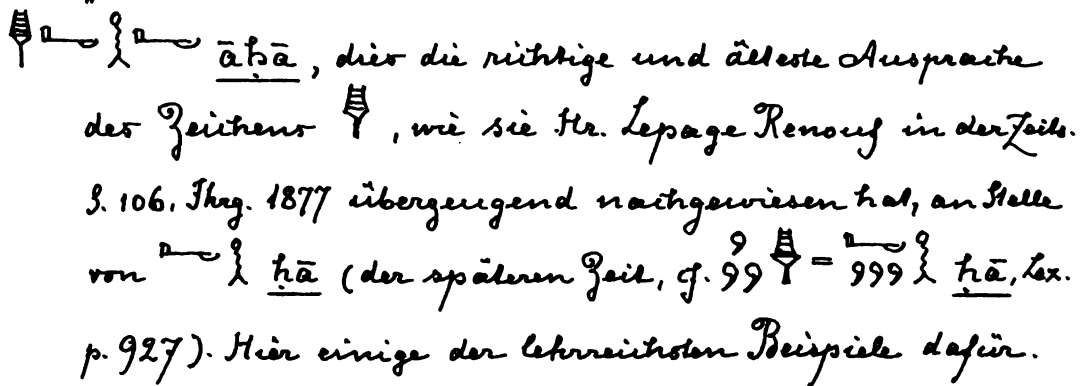 𓊢𓂝𓎛𓂝 āḥā, dies die richtige und älteste Aussprache
des Zeichens 𓊢, wie sie Hr. Lepage Renouf in der Zeits.
S. 106. Jhrg. 1877 überzeugend nachgewiesen hat, an Stelle
von 𓂝𓎛 ḥā (der späteren Zeit, cf. 𓏲𓏲𓏲𓊢 = 𓂝𓏲𓏲𓏲𓎛 ḥā, Lex.
p. 927). Hier einige der lehrreichsten Beispiele dafür.